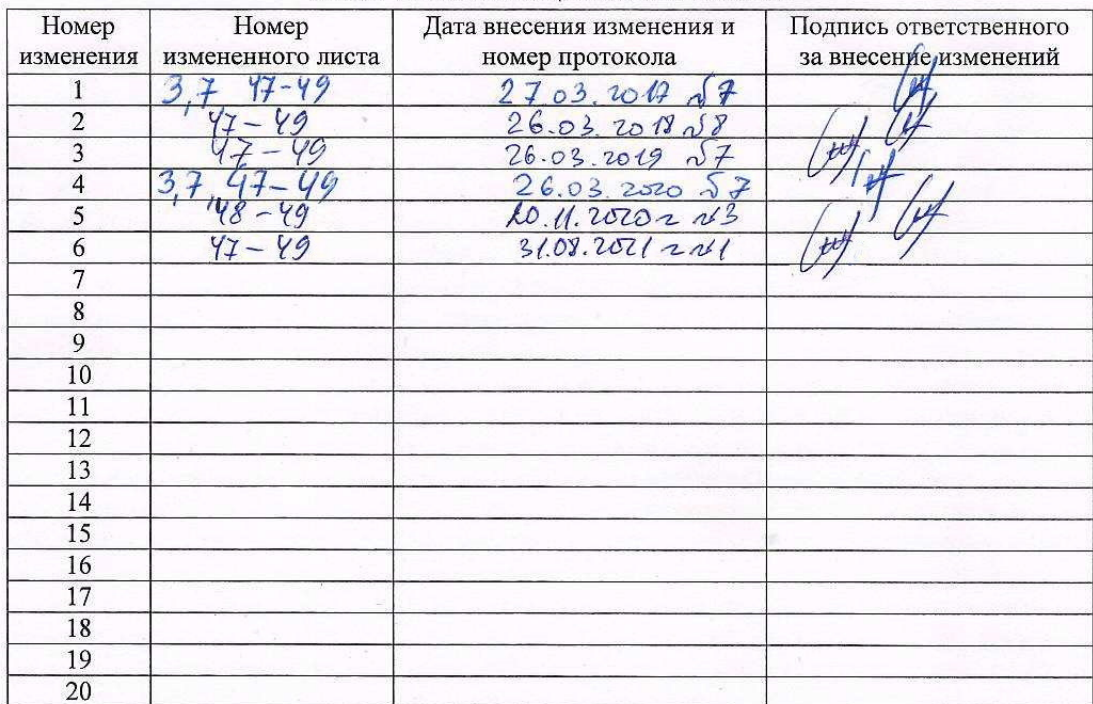 Номер изменения Номер измененного листа Дата внесения изменения и номер протокола Подпись ответственного за внесение изменений
1 3,7 47-49 27.03.2017 №7
2 47-49 26.03.2018 №8
3 47-49 26.03.2019 №7
4 3,7,47-49 26.03.2020 №7
5 48-49 20.11.2020 г №3
6 47-49 31.08.2021 г №1
7
8
9
10
11
12
13
14
15
16
17
18
19
20